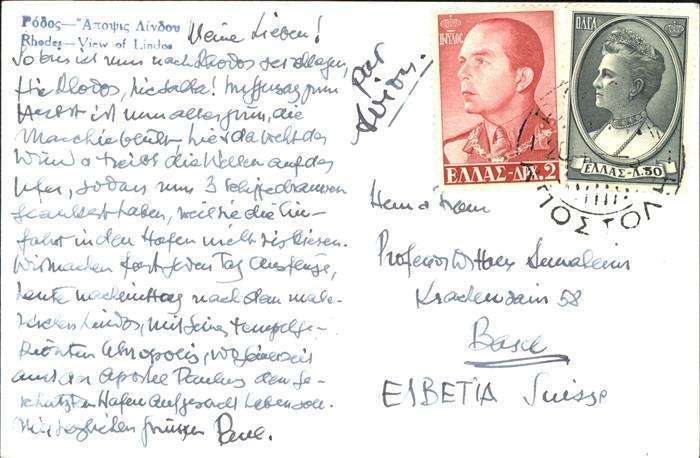 Ρόδος—Ἄποψις Λίνδου
Rhodes—View of Lindos
Meine Lieben!
So bin ich nun nach Rhodos
Hic Rhodos, hic salta!
Herbst ist nun alles grün, die
hie & da weht der
Wind & treibt die Wellen auf das
Ufer, sodass nun 3 Schiffe draussen
haben, weil sie die Ein-
fahrt in den Hafen nicht
Wir machen fast jeden Tag Ausflüge,
heute nachmittag nach dem male-
rischen Lindos, mit seiner tempelge-
krönten Akropolis, wo seinerzeit
auch der Apostel Paulus den ge-
schützten Hafen aufgesucht haben soll.
Mit herzlichen Grüssen Paul.
par
avion.
ΠΑΥΛΟΣ
ΕΛΛΑΣ-ΔΡΧ.2
ΟΛΓΑ
ΕΛΛΑΣ-Λ.50
Herrn & Frau
Professor Dr Hans
58
Basel
ELBETIA Suisse